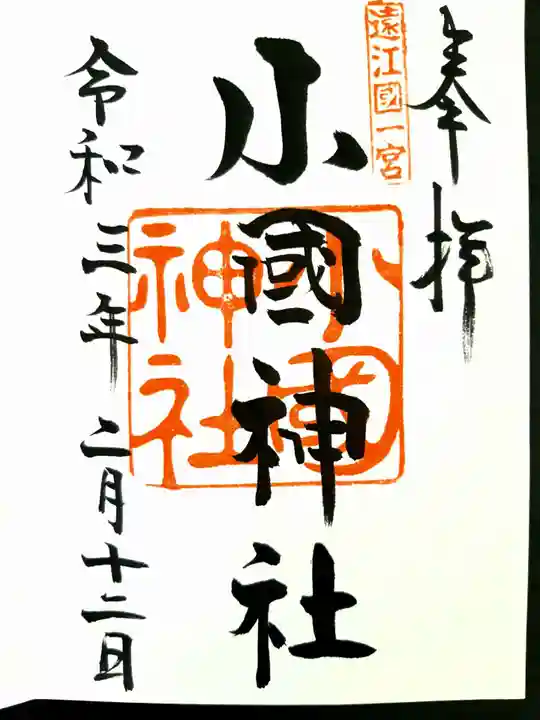 奉拝
遠江國一宮
小國神社
小國神社
令和三年二月十二日